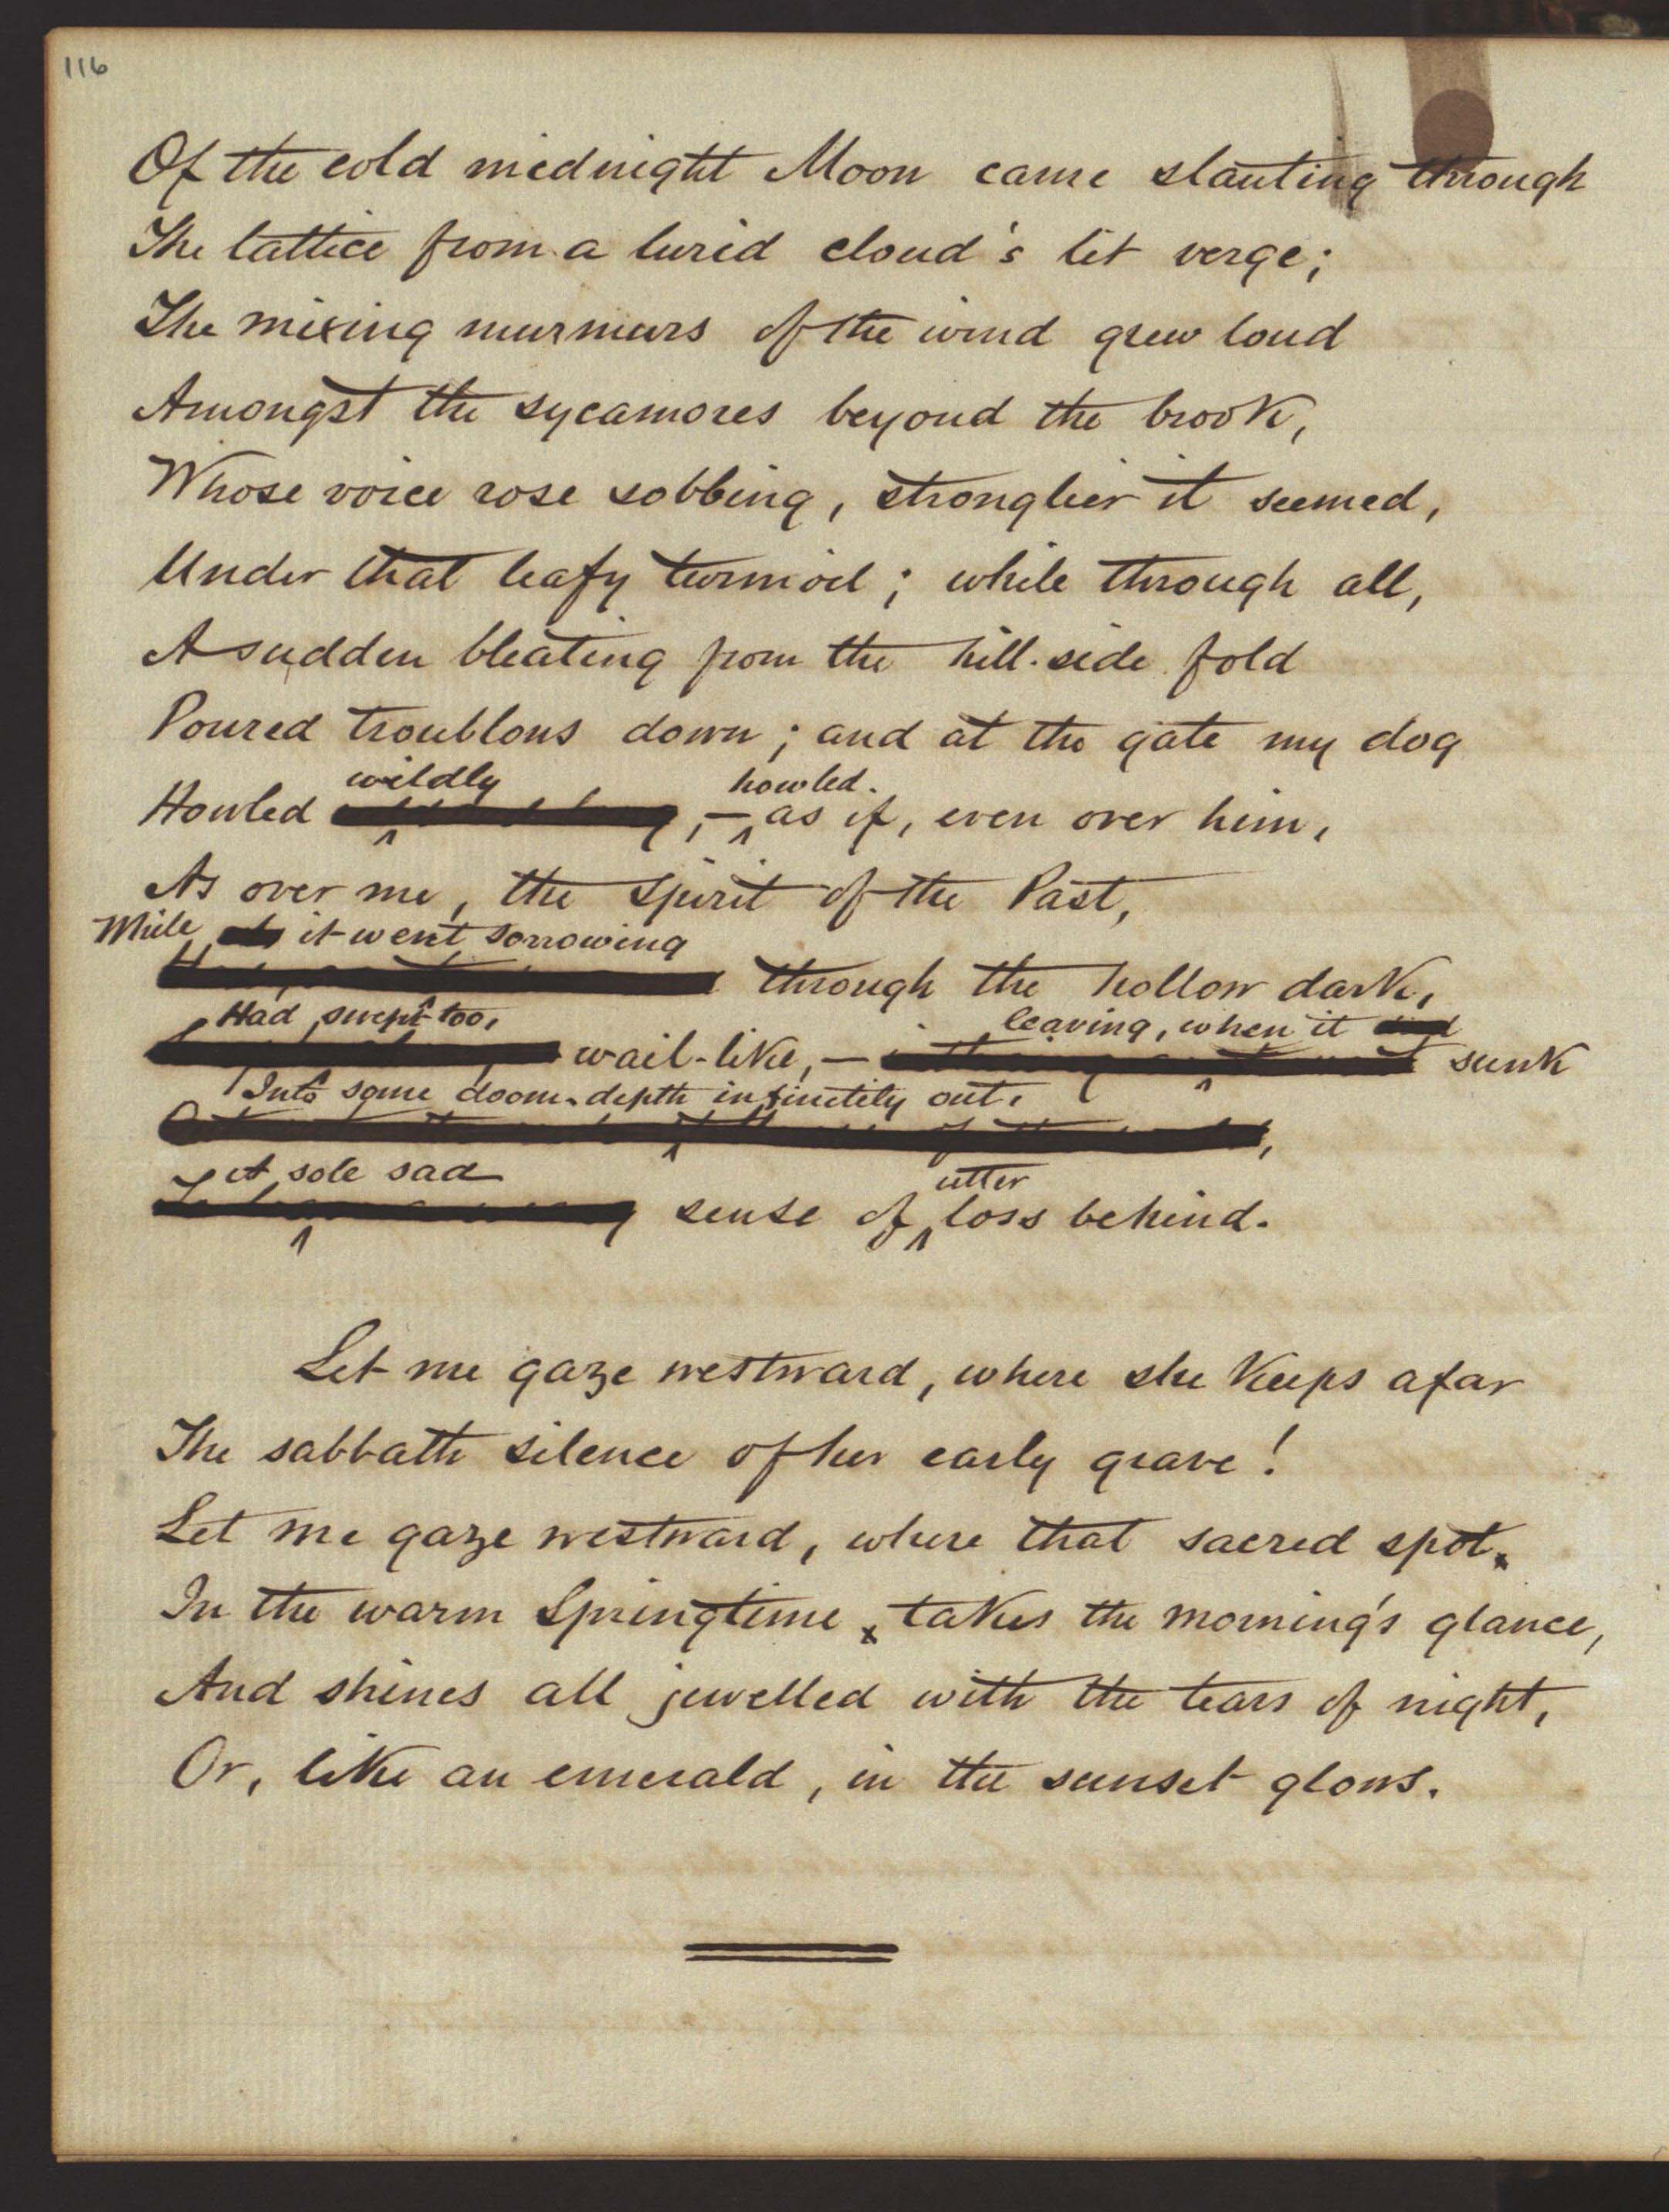 116
Of the cold midnight Moon came slanting through
The lattice from a lurid cloud's lit verge;
The mixing murmurs of the wind grew loud
Amongst the sycamores beyond the brook,
Whose voice rose sobbing, stronglier it seemed,
Under that leafy turmoil; while through all,
A sudden bleating from the hill-side fold
Poured troublous down; and at the gate my dog
wildly howled.
Howled , — as if, even over him,
As over me, the Spirit of the Past,
While it went sorrowing
through the hollow dark,
Had swept too, leaving, when it
wail-like, — sunk
Into some doom-depth infinitely out,
A sole sad utter
sense of loss behind.
Let me gaze westward, where she keeps afar
The sabbath silence of her early grave!
Let me gaze westward, where that sacred spot
In the warm Springtime takes the morning's glance,
And shines all jewelled with the tears of night,
Or, like an emerald, in the sunset glows.